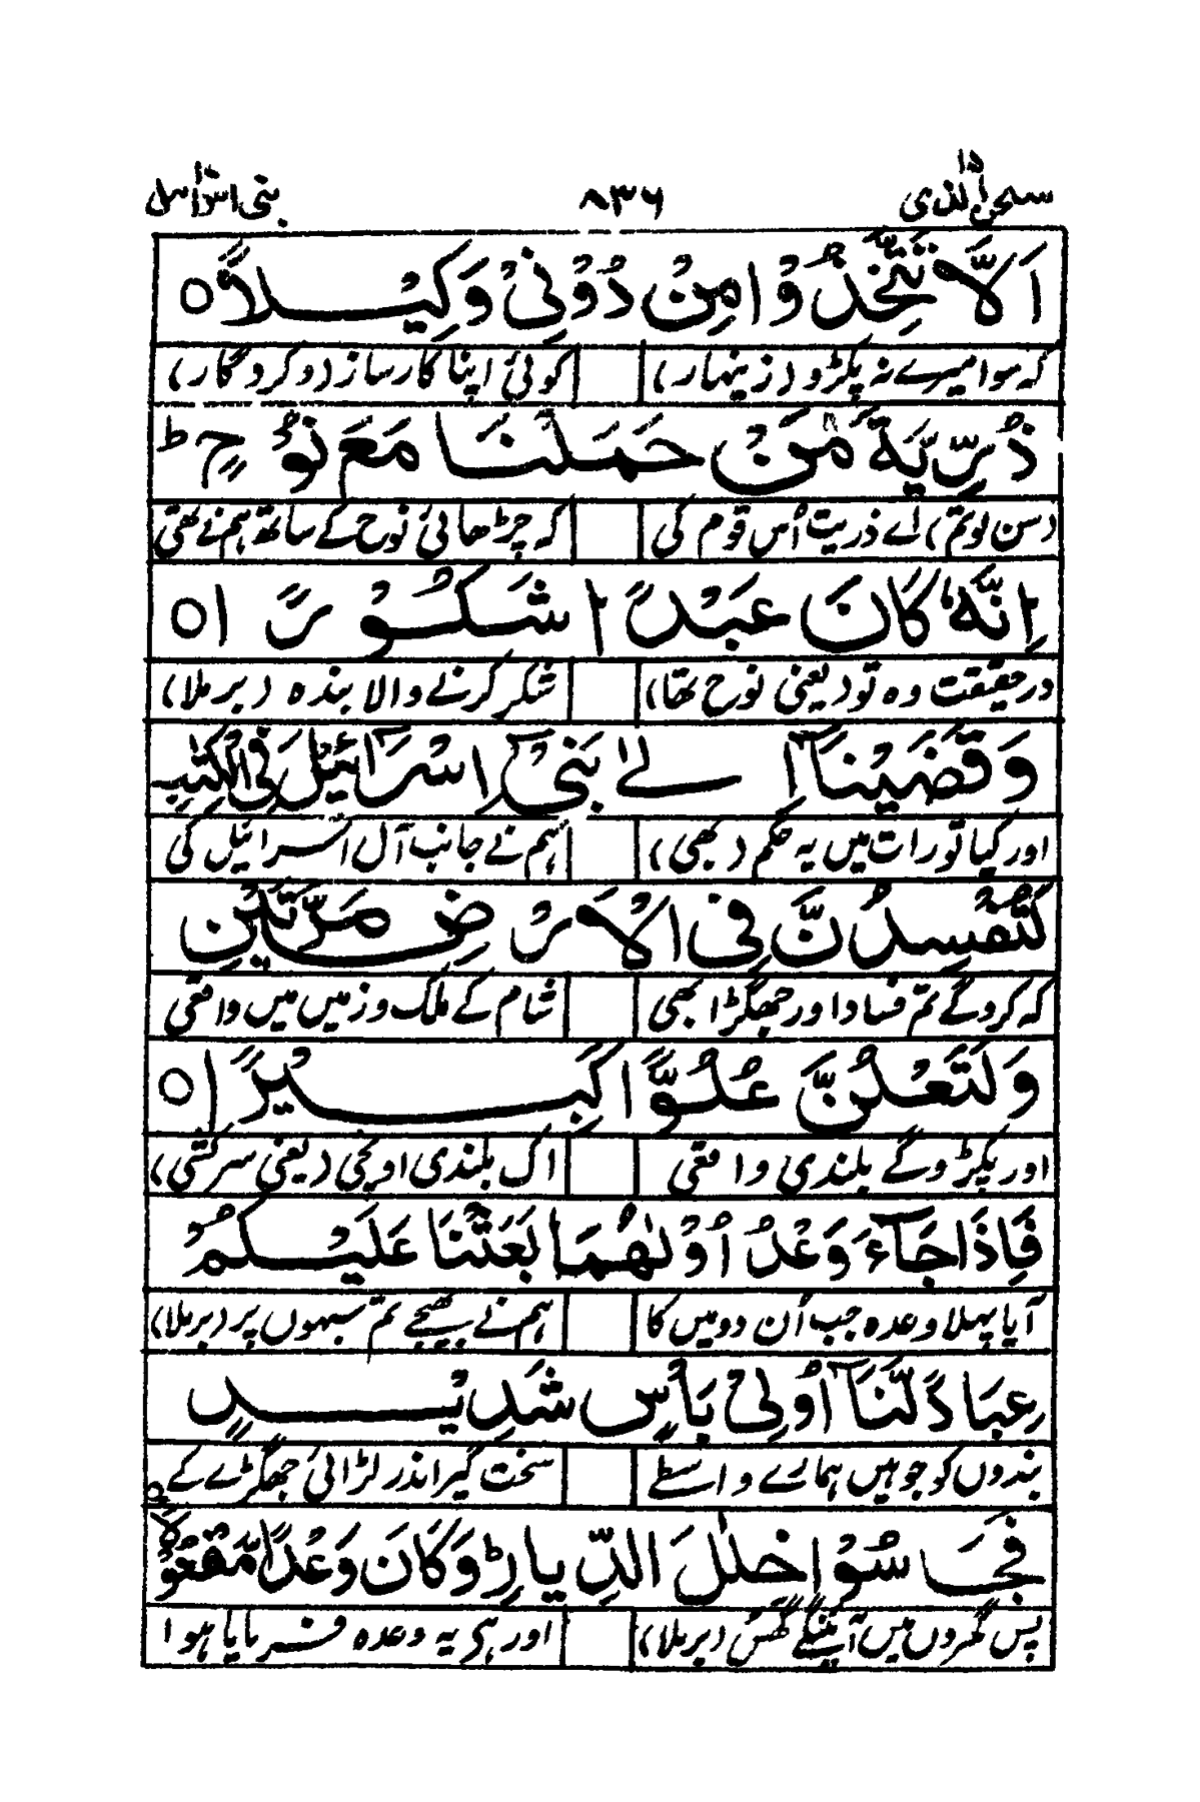 سبحٰن الذی ۱۵ ۸۳۶ بنی اسرآءیل ۱۷
اَلَّا تَتَّخِذُوْا مِنْ دُوْنِیْ وَكِیْلًا ○
کہ سوا میرے نہ پکڑو (زینہار) کوئی اپنا کارساز (و کردگار)
ذُرِّیَّةَ مَنْ حَمَلْنَا مَعَ نُوْحٍ ؕ
(سن لو تم) اے ذریت اُس قوم کی کہ چڑھائی نوح کے ساتھ ہم نے تھی
اِنَّهٗ كَانَ عَبْدًا شَكُوْرًا ○
درحقیقت وہ تو (یعنی نوح تھا) شکر کرنے والا بندہ (برملا)
وَقَضَیْنَاۤ اِلٰی بَنِیْۤ اِسْرَآئِیْلَ فِی الْكِتٰبِ
اور کیا تورات میں یہ حکم (بھی) ہم نے جانب آل اسرائیل کی
لَتُفْسِدُنَّ فِی الْاَرْضِ مَرَّتَیْنِ
کہ کرو گے تم فساد اور جھگڑا بھی شام کے ملک و زمیں میں واقعی
وَلَتَعْلُنَّ عُلُوًّا كَبِیْرًا ○
اور پکڑو گے بلندی واقعی اک بلندی اونچی (یعنی سرکشی)
فَاِذَا جَآءَ وَعْدُ اُوْلٰىهُمَا بَعَثْنَا عَلَیْكُمْ
آیا پہلا وعدہ جب اُن دو میں کا ہم نے بھیجے تم سبھوں پر (برملا)
عِبَادًا لَّنَاۤ اُولِیْ بَاْسٍ شَدِیْدٍ
بندوں کو جو ہیں ہمارے واسطے سخت گیر اندر لڑائی جھگڑے کے
فَجَاسُوْا خِلٰلَ الدِّیَارِ ؕ وَكَانَ وَعْدًا مَّفْعُوْلًا ○
پس گھروں میں آئینگے گھس (برملا) اور ہی یہ وعدہ فرمایا ہوا